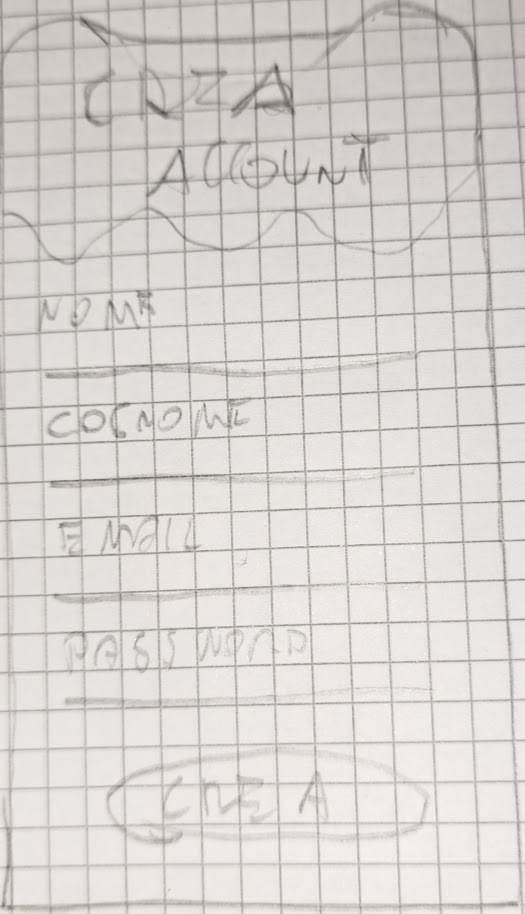 CREA
ACCOUNT
NOME
COGNOME
EMAIL
PASSWORD
CREA